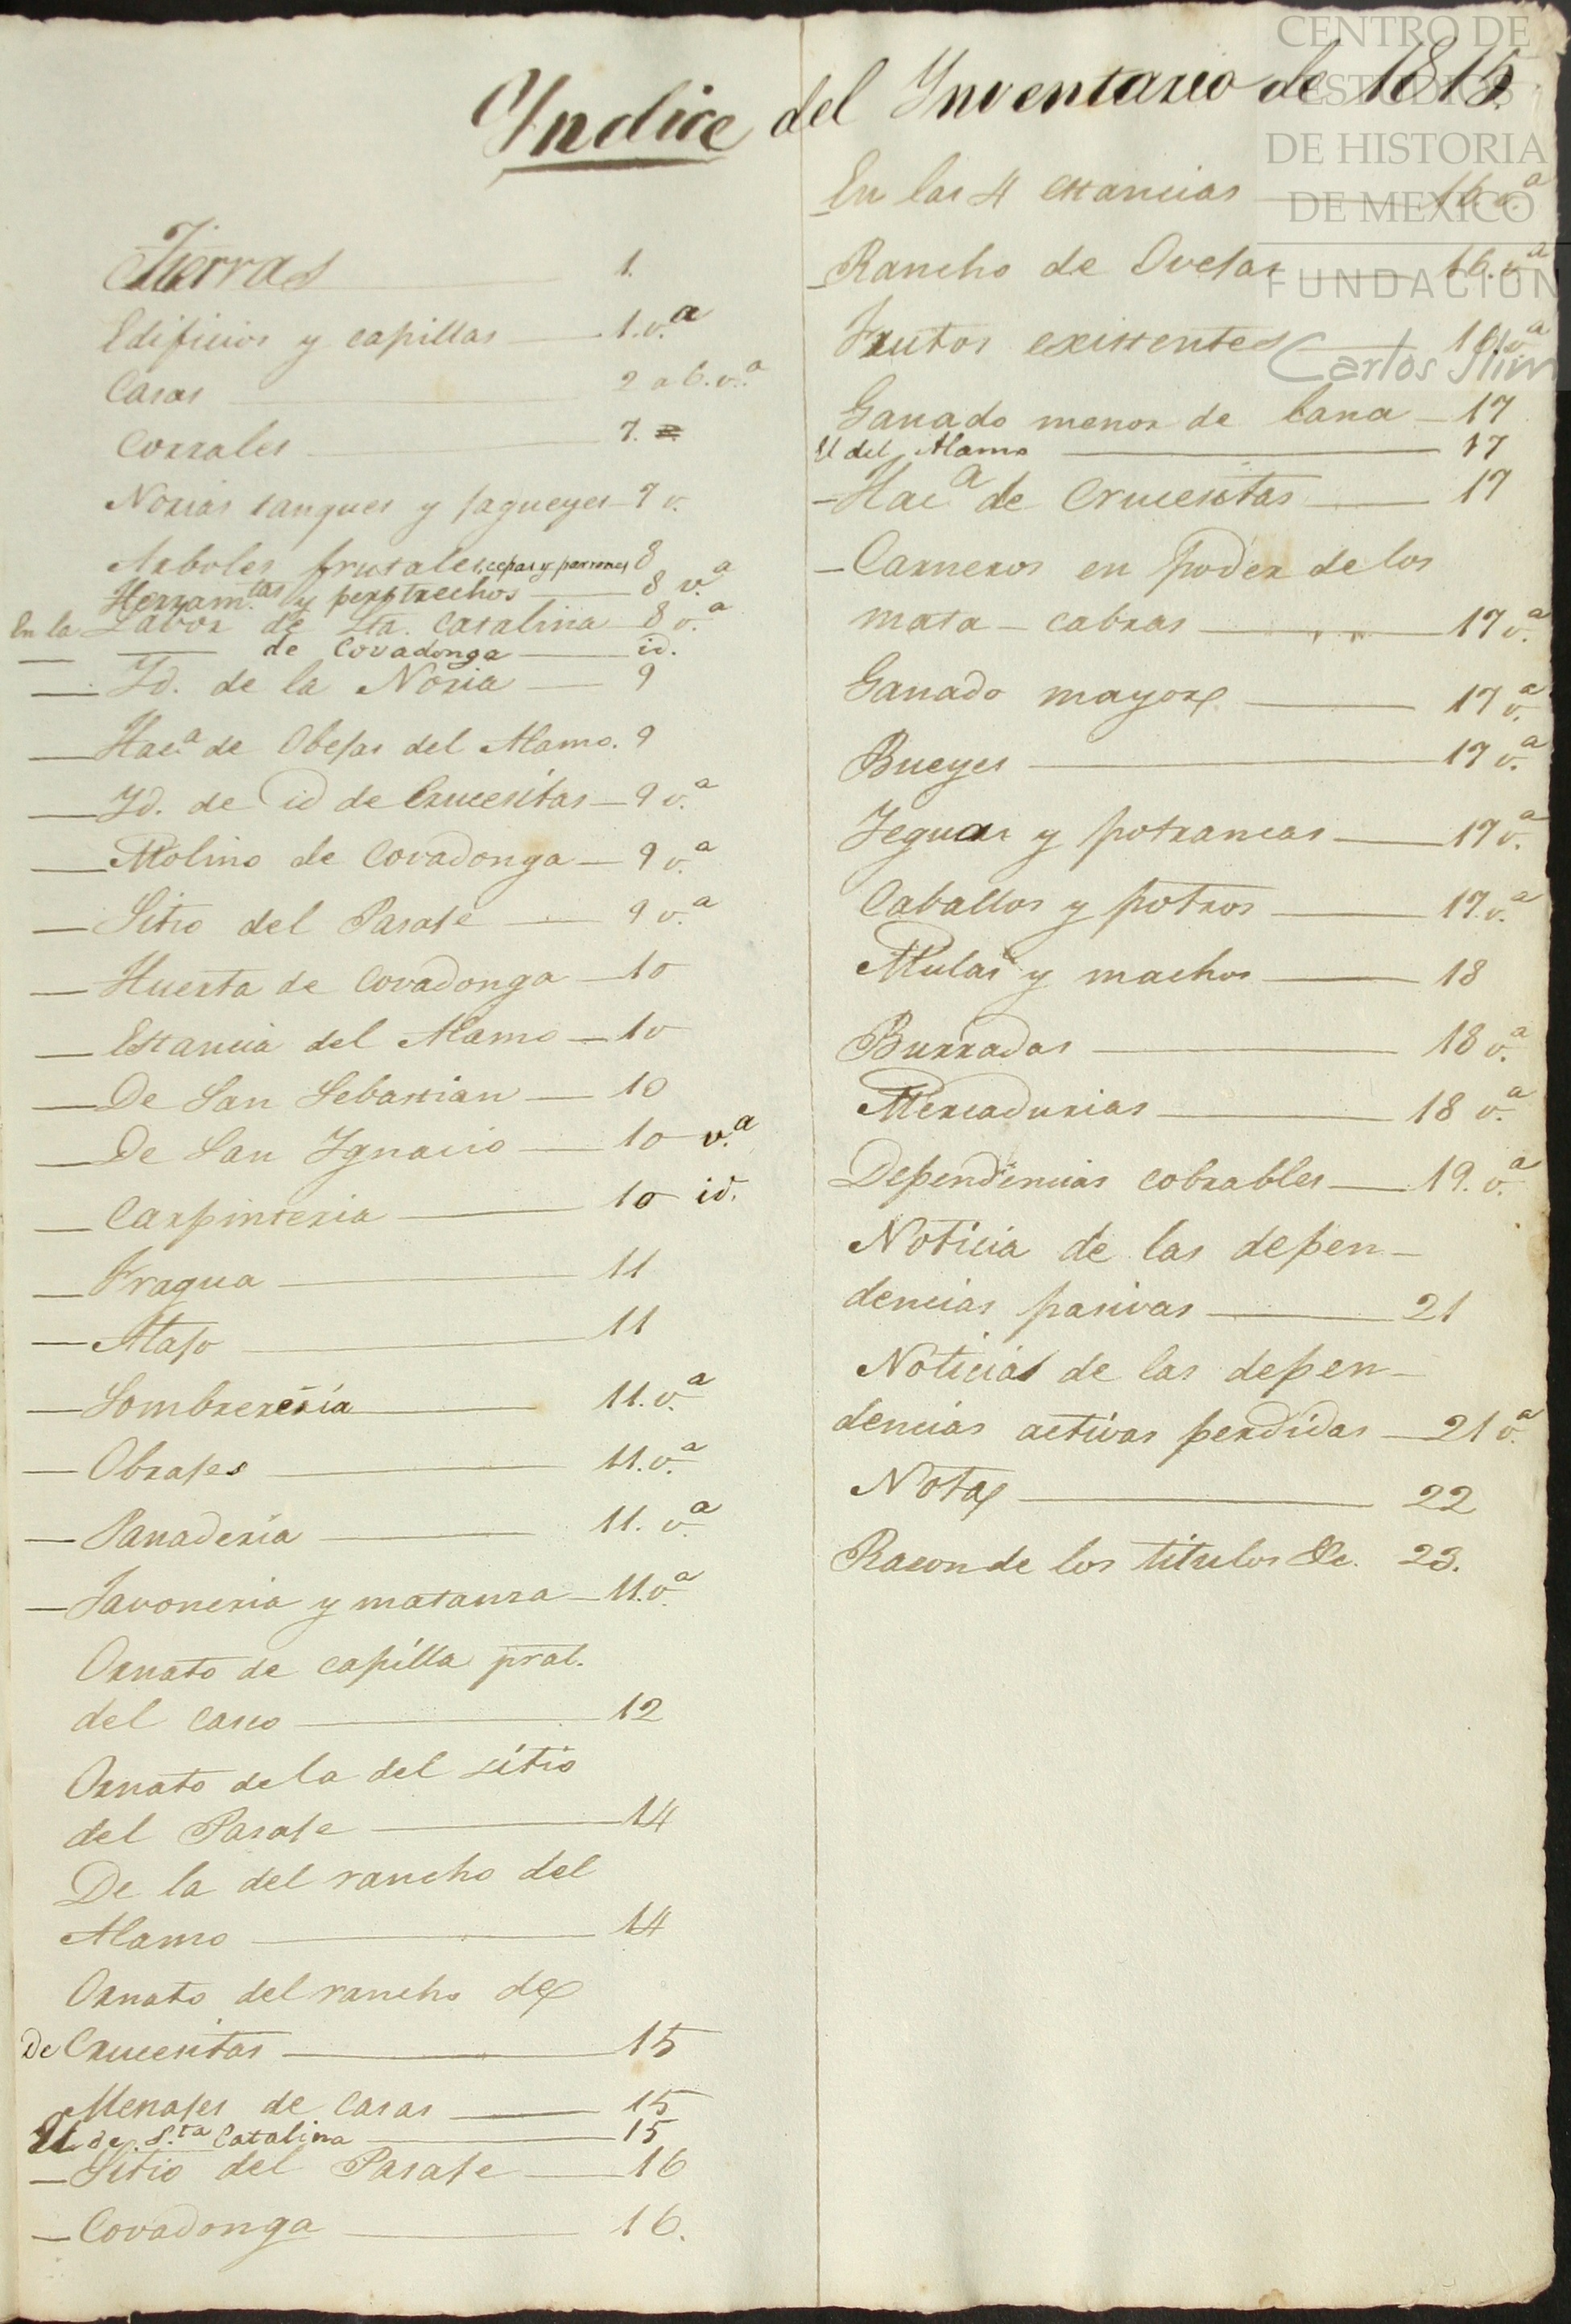 Yndice del Ynventario de 1815.
Tierras 1.
Edificios y capillas 1. v.a
Casas 2 a 6. v.a
Corrales 7.
Norias tanques y jagueyes 7 v.
Arboles frutales, cepas y parrones 8
Herram.tas y perptrechos 8 v.a
En la Labor de Sta. Catalina 8 v.a
— — de Covadonga id.
— Yd. de la Noria 9
— Hac.a de Obejas del Alamo. 9
— Yd. de id de Crucesitas 9 v.a
— Molino de Covadonga 9 v.a
— Sitio del Pasaje 9 v.a
— Huerta de Covadonga 10
— Estancia del Alamo 10
— De San Sebastian 10
— De San Ygnacio 10 v.a
— Carpinteria 10 id.
— Fragua 11
— Atajo 11
— Sombrereria 11. v.a
— Obrajes 11. v.a
— Panaderia 11. v.a
— Javoneria y matanza 11. v.a
Ornato de capilla pral.
del casco 12
Ornato de la del sitio
del Pasaje 14
De la del rancho del
Alamo 14
Ornato del rancho de
De Crucesitas 15
Menajes de casas 15
de S.ta Catalina 15
— Sitio del Pasaje 16
— Covadonga 16.
En las 4 estancias 16. v.a
Rancho de Ovejas 16. v.a
Frutos existentes 16. v.a
Ganado menor de lana 17
del Alamo 17
— Hac.a de Crucesitas 17
— Carneros en poder de los
mata-cabras 17 v.a
Ganado mayor 17 v.a
Bueyes 17 v.a
Yeguas y potrancas 17 v.a
Caballos y potros 17. v.a
Mulas y machos 18
Burradas 18 v.a
Mercadurias 18 v.a
Dependencias cobrables 19. v.a
Noticia de las depen-
dencias pasivas 21
Noticias de las depen-
dencias activas perdidas 21 v.a
Nota 22
Razon de los titulos &c. 23.
CENTRO DE
ESTUDIOS
DE HISTORIA
DE MEXICO
FUNDACIÓN
Carlos Slim